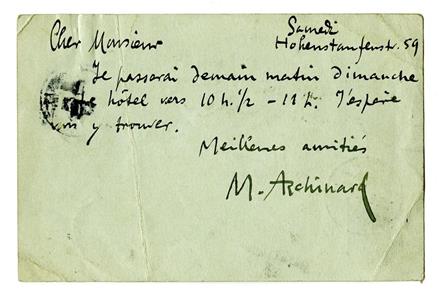 Samedi
Cher Monsieur Hohenstaufenstr. 59
Je passerai demain matin Dimanche
hôtel vers 10 h. 1/2 - 11 h. J'espère
y trouver.
Meilleures amitiés
M. Archinard